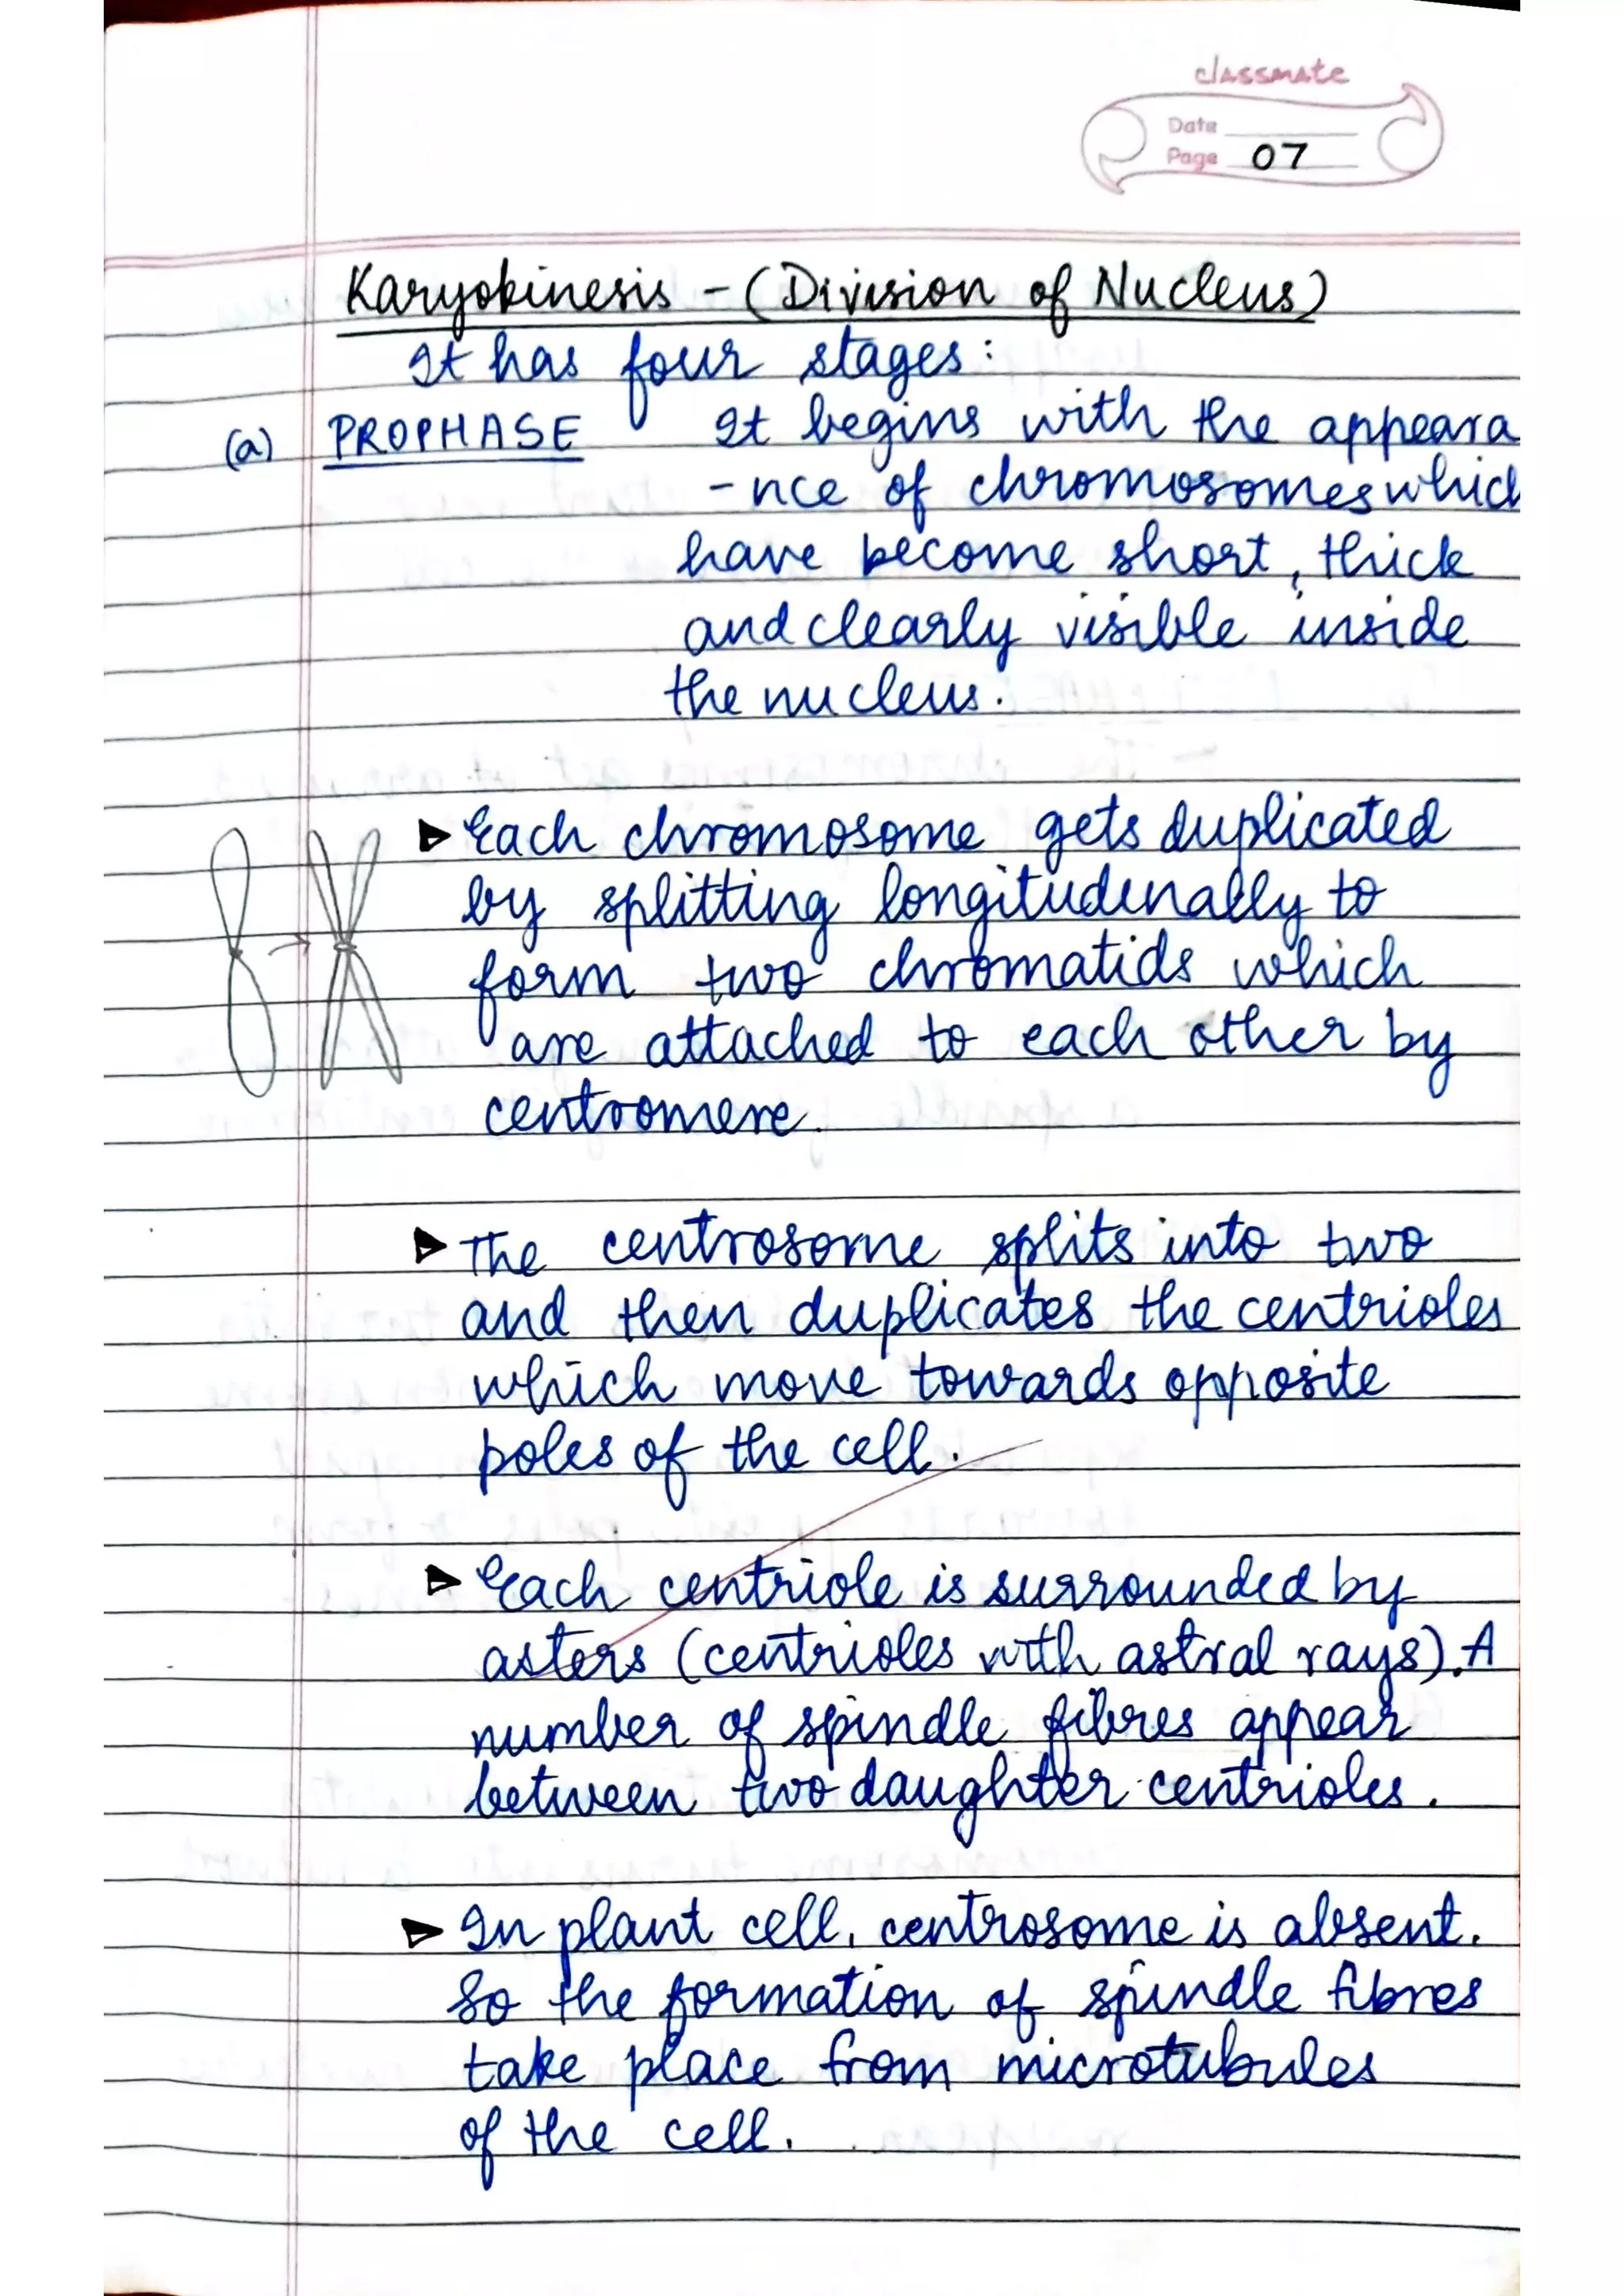 classmate
Date
Page 07
Karyokinesis - (Division of Nucleus)
It has four stages:
(a) PROPHASE It begins with the appeara
-nce of chromosomes which
have become short, thick
and clearly visible inside
the nucleus.
Each chromosome gets duplicated
by splitting longitudinally to
form two chromatids which
are attached to each other by
centromere.
The centrosome splits into two
and then duplicates the centrioles
which move towards opposite
poles of the cell.
Each centriole is surrounded by
asters (centrioles with astral rays). A
number of spindle fibres appear
between two daughter centrioles.
In plant cell, centrosome is absent.
So the formation of spindle fibres
take place from microtubules
of the cell.